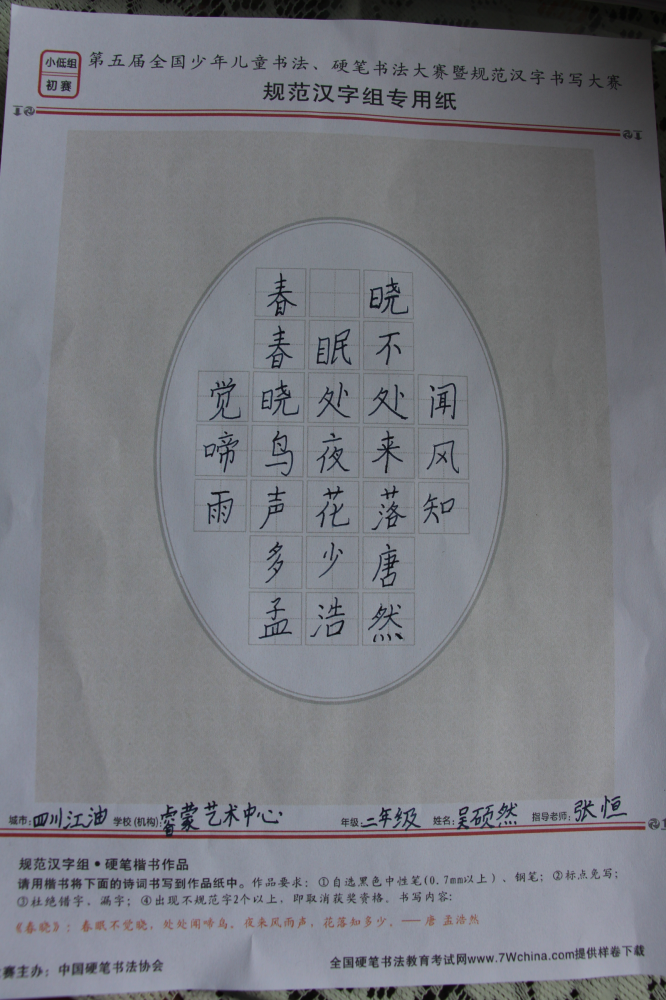 小低组
初赛
第五届全国少年儿童书法、硬笔书法大赛暨规范汉字书写大赛
规范汉字组专用纸
春 晓
春眠不
觉晓处处闻
啼鸟夜来风
雨声花落知
多少唐
孟浩然
城市:四川江油 学校(机构):睿蒙艺术中心 年级:二年级 姓名:吴硕然 指导老师:张恒
规范汉字组·硬笔楷书作品
请用楷书将下面的诗词书写到作品纸中。作品要求:①自选黑色中性笔(0.7mm以上)、钢笔;②标点免写;
③杜绝错字、漏字;④出现不规范字2个以上,即取消获奖资格。书写内容:
《春晓》:春眠不觉晓,处处闻啼鸟。夜来风雨声,花落知多少。——唐 孟浩然
赛主办:中国硬笔书法协会 全国硬笔书法教育考试网www.7Wchina.com提供样卷下载